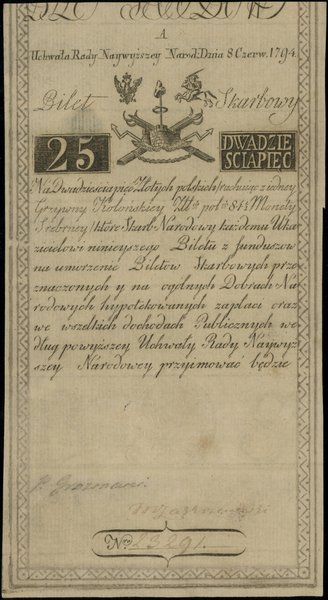 A
Uchwała Rady Naywyższey Narod: Dnia 8 Czerw. 1794.
Bilet Skarbowy
25 DWADZIE
SCIAPIEC
Na Dwadziesciapięć Złotych polskich rachuiąc z iedney
Grzywny Kolońskiey Złt: pol: 84½ Monety
Srebrney/które Skarb Narodowy każdemu Uka,
zicielowi ninieyszego Biletu z funduszow
na umorzenie Biletów Skarbowych prze,
znaczonych y na ogólnych Dobrach Na,
rodowych hypotekowanych zapłaci oraz
we wszelkich dochodach Publicznych we,
dług powyższey Uchwały Rady Naywyż,
szey Narodowey przyimować będzie
Nro 23291.